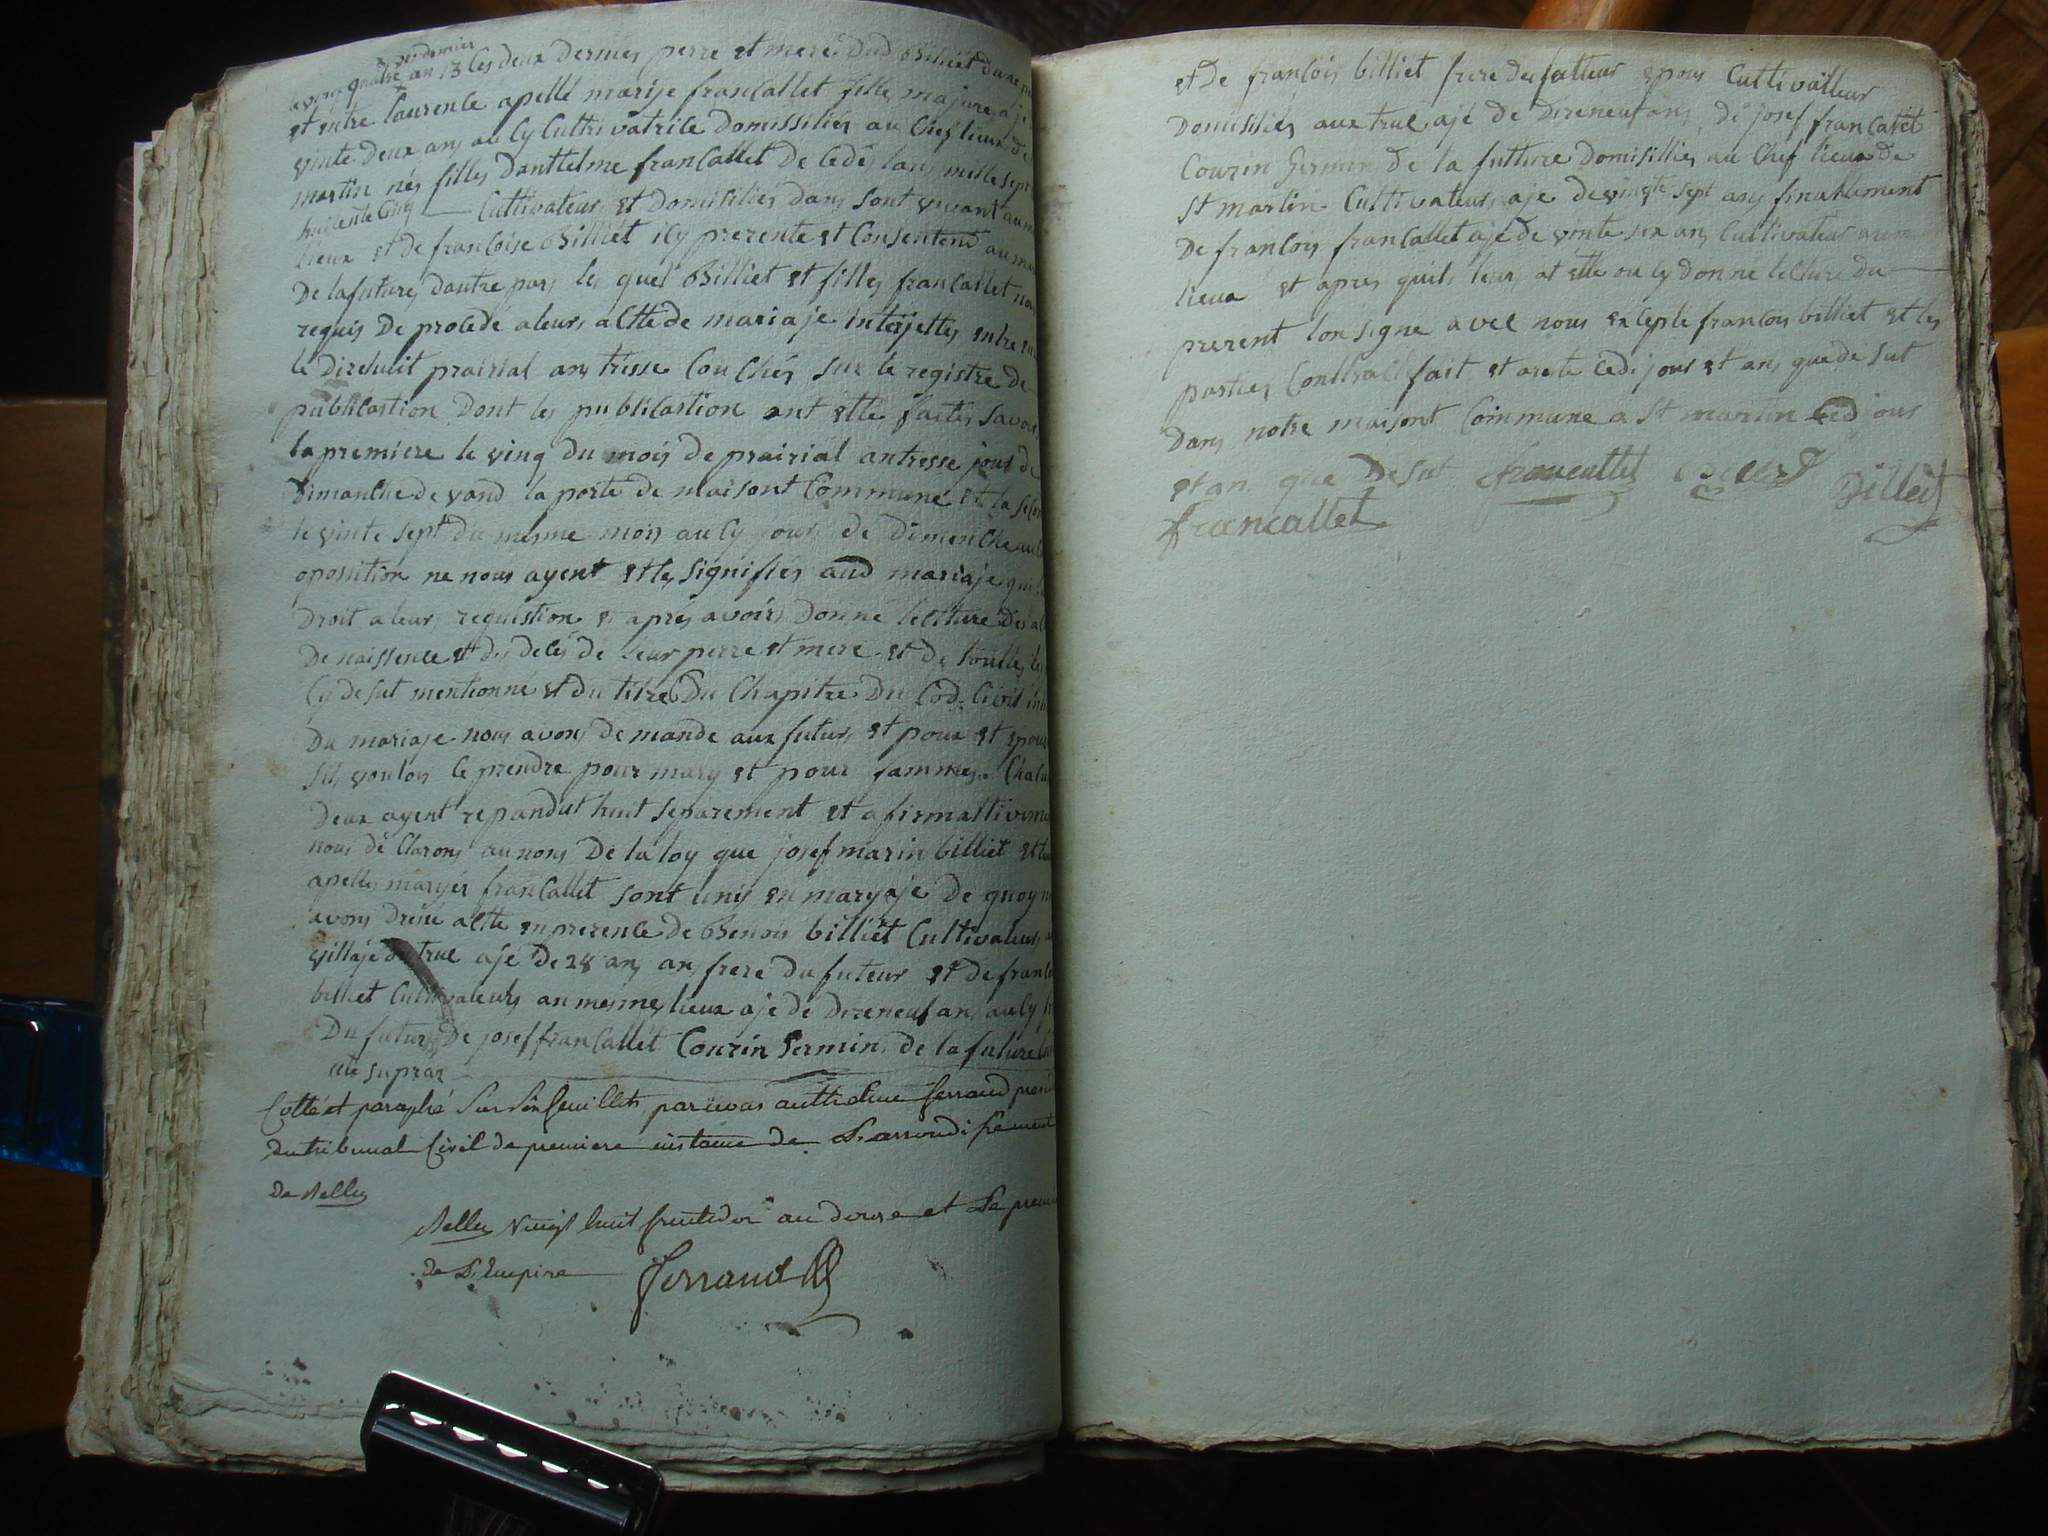 an 13 les deux dernies perre et mere dud Billiet d'une
et entre laurence apellé marije francallet fille majure aje
vinte deux ans aucy Cultrivatrice domissiliés au Chef lieux de
martin nés filles danttelme francallet de cedés lans mille sept
huitente Cinq Cultivateurs et domisiliés dans sont vivant au
lieux et de francoise Billiet icy prezente et Consentend au
De lafutures dautre pars les quel Billiet et filles francallet
requis De procedé a leurs altte de mariaje interjettes entre
le direhuit prairial ans tresse Couchés sur le registre de
publicastion Dont les publicastion ont ette faites savoir
la premiere le ving du mois de prairial antresse jour de
Dimanche devand la porte de maisont Commune et la
le vinte sept du mesme mois aucy jours de Dimenche
oposition ne nous ayent ette signifiés aud mariaje
Droit a leurs requistion et aprés avoirs Donné lecture des
De naissence et des decés de leur perre et mere et de touttes
Cy desut mentionné et du titre Du Chapitre Du Cod. Civil
Du mariaje nous avons demande aux futurs et poux et
sils voulois le prendre pour mary et pour famme
Deux ayent repandut huit separement et afirmattivem
nous de Clarons aunons De la loy que josef marin billiet et
apelles maryés francallet sont unis en maryaje De quoy
avons dresse altte en prerence de Benoit billiet Cultivateurs
villaje du truc aje de 28 ans frere du futeur et de
billiet Cultivateurs au mesmes lieux aje de direneuf ans aucy
Du futurs De josef francallet Courin Germins de la future
ut supra
Cotté et paraphé par nous antthelme Ferrand
du tribunal Civil de premiere instance de L'arrondissement
de Belley
Belley vingt huit fructidor an douze et Le
de L'Empire Ferrand
et De francois billiet frere du futteur epoux Cultivatteur
Domisiliés aux truc ajé de Direneuf ans, de josef francallet
Courin Germin De la futture Domisilliés au Chef lieux de
St martin Cultivateurs aje de vingte sept ans finallement
De francois francallet ajé de vinte six ans Cultivateur au
lieux et apres quils leurs at ette oucy donne lecture du
prerent lon signe avec nous excepté francois billiet et les
parties Conttract fait et areté cedi jour et ans que de sut
Dans notre maisont Commune a St martin ced jour
et an que Desut francallet Billiet
francallet